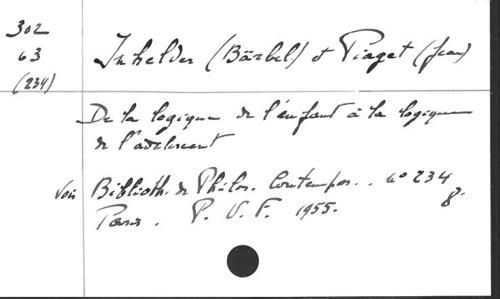 302
63
(234)
Inhelder (Bärbel) et Piaget (Jean)
De la logique de l'enfant à la logique
de l'adolescent
Voir Biblioth. de Philos. Contempor.. n° 234
8.
Paris. P. U. F. 1955.